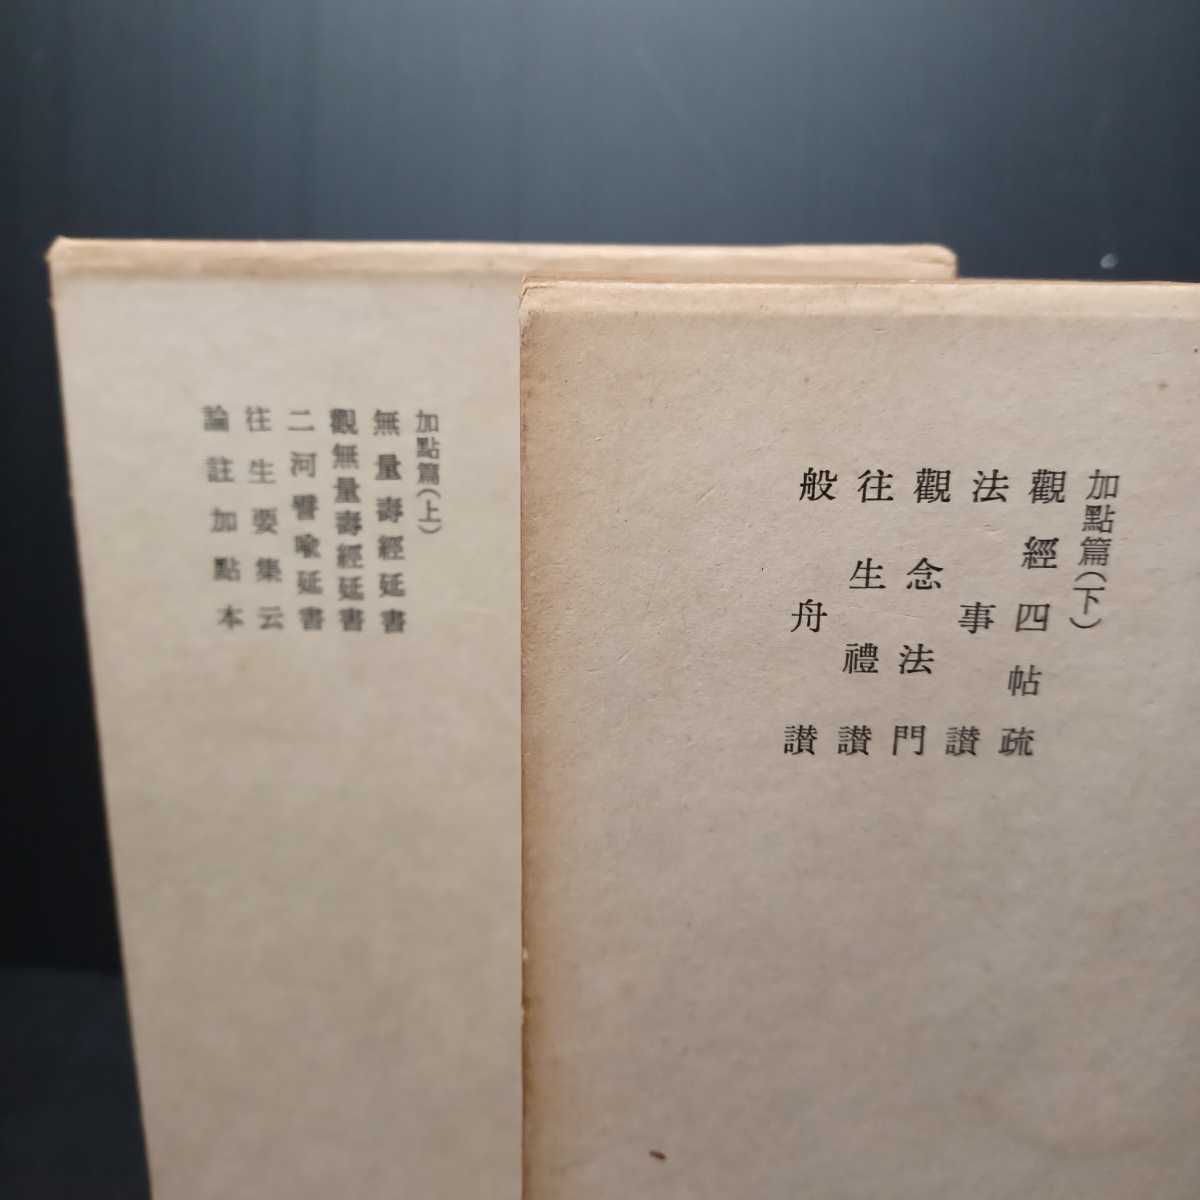 加點篇(上)
無量壽經延書
觀無量壽經延書
二河譬喩延書
往生要集云
論註加點本
加點篇(下)
觀經四帖疏
法事讃
觀念法門
往生禮讃
般舟讃